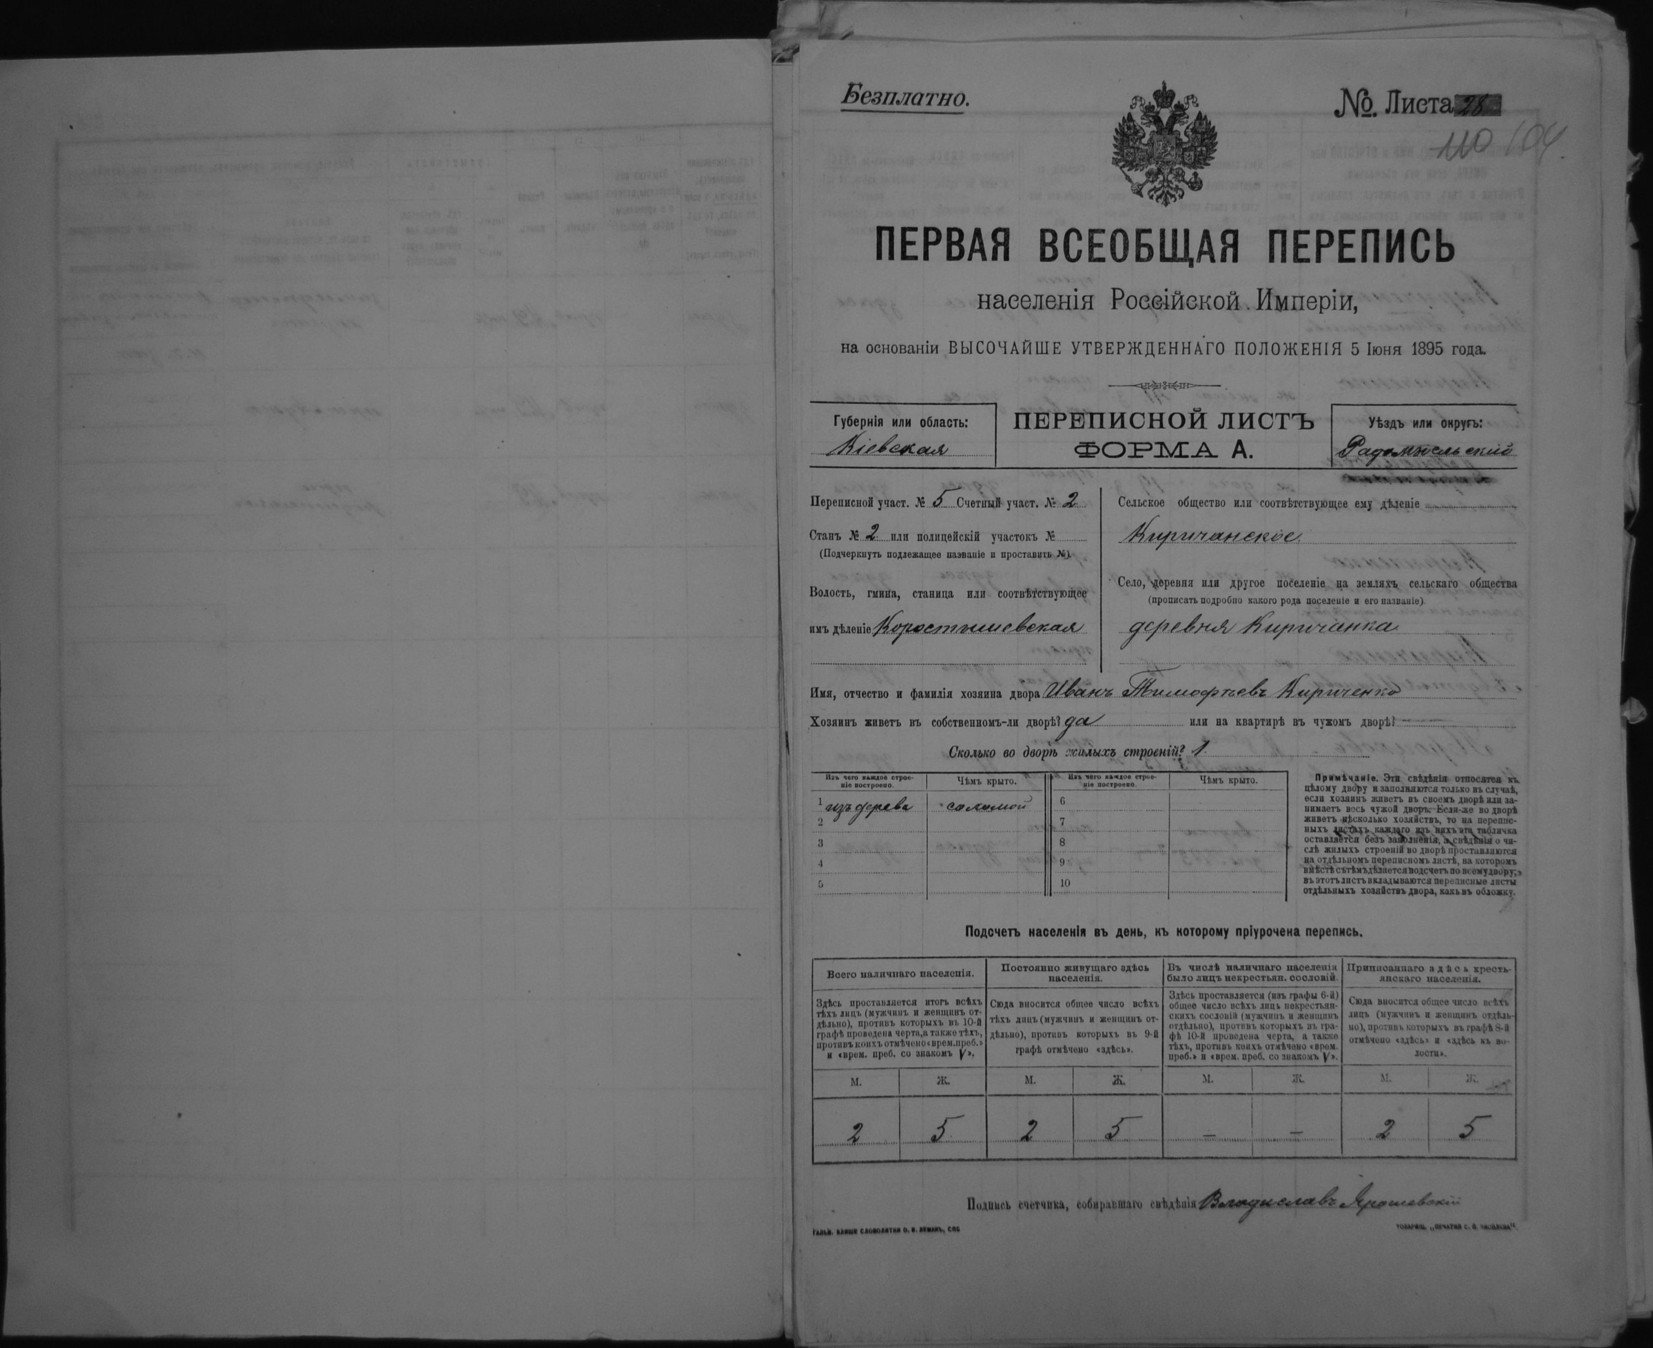 Безплатно.
№. Листа 28
110 104.
ПЕРВАЯ ВСЕОБЩАЯ ПЕРЕПИСЬ
населенія Россійской Имперіи,
на основаніи ВЫСОЧАЙШЕ УТВЕРЖДЕННАГО ПОЛОЖЕНІЯ 5 Іюня 1895 года.
Губернія или область:
Кіевская
ПЕРЕПИСНОЙ ЛИСТЪ
ФОРМА А.
Уѣздъ или округъ:
Радомысльскій
Переписной участ. № 5 Счетный участ. № 2
Станъ № 2 или полицейскій участокъ №
(Подчеркнуть подлежащее названіе и проставить №).
Волость, гмина, станица или соотвѣтствующее
имъ дѣленіе Коростышевская
Сельское общество или соотвѣтствующее ему дѣленіе
Киричанское
Село, деревня или другое поселеніе на земляхъ сельскаго общества
(прописать подробно какого рода поселеніе и его названіе)
деревня Киричанка
Имя, отчество и фамилія хозяина двора Иванъ Тимофѣевъ Кириченко
Хозяинъ живетъ въ собственномъ-ли дворѣ? да или на квартирѣ въ чужомъ дворѣ?
Сколько во дворѣ жилыхъ строеній? 1
Изъ чего каждое строе-
ніе построено.
Чѣмъ крыто.
Изъ чего каждое строе-
ніе построено.
Чѣмъ крыто.
1 изъ дерева соломой 6
2 7
3 8
4 9
5 10
Примѣчаніе. Эти свѣдѣнія относятся къ
цѣлому двору и заполняются только въ случаѣ,
если хозяинъ живетъ въ своемъ дворѣ или за-
нимаетъ весь чужой дворъ. Если-же во дворѣ
живетъ нѣсколько хозяйствъ, то на перепис-
ныхъ листахъ каждаго изъ нихъ эта табличка
оставляется безъ заполненія, а свѣдѣнія о чи-
слѣ жилыхъ строеній во дворѣ проставляются
на отдѣльномъ переписномъ листѣ, на которомъ
вмѣстѣ съ тѣмъ дѣлается подсчетъ по всему двору;
въ этотъ листъ вкладываются переписные листы
отдѣльныхъ хозяйствъ двора, какъ въ обложку.
Подсчетъ населенія въ день, къ которому пріурочена перепись.
Всего наличнаго населенія.
Здѣсь проставляется итогъ всѣхъ
тѣхъ лицъ (мужчинъ и женщинъ от-
дѣльно), противъ которыхъ въ 10-й
графѣ проведена черта, а также тѣхъ,
противъ коихъ отмѣчено «врем. преб.»
и «врем. преб. со знакомъ V».
Постоянно живущаго здѣсь
населенія.
Сюда вносится общее число всѣхъ
тѣхъ лицъ (мужчинъ и женщинъ от-
дѣльно), противъ которыхъ въ 9-й
графѣ отмѣчено «здѣсь».
Въ числѣ наличнаго населенія
было лицъ некрестьян. сословій.
Здѣсь проставляется (изъ графы 6-й)
общее число всѣхъ лицъ некрестьян-
скихъ сословій (мужчинъ и женщинъ
отдѣльно), противъ которыхъ въ гра-
фѣ 10-й проведена черта, а также
тѣхъ, противъ коихъ отмѣчено «врем.
преб.» и «врем. преб. со знакомъ V».
Приписаннаго здѣсь кресть-
янскаго населенія.
Сюда вносится общее число всѣхъ
лицъ (мужчинъ и женщинъ отдѣль-
но), противъ которыхъ въ графѣ 8-й
отмѣчено «здѣсь» и «здѣсь въ во-
лости».
М. Ж. М. Ж. М. Ж. М. Ж.
2 5 2 5 – – 2 5
Подпись счетчика, собиравшаго свѣдѣнія Владиславъ Ярошевскій
ГАЛЬВ. КЛИШЕ СЛОВОЛИТНИ О. И. ЛЕМАНЪ, СПБ.
ТОВАРИЩ. „ПЕЧАТНЯ С. П. ЯКОВЛЕВА“.